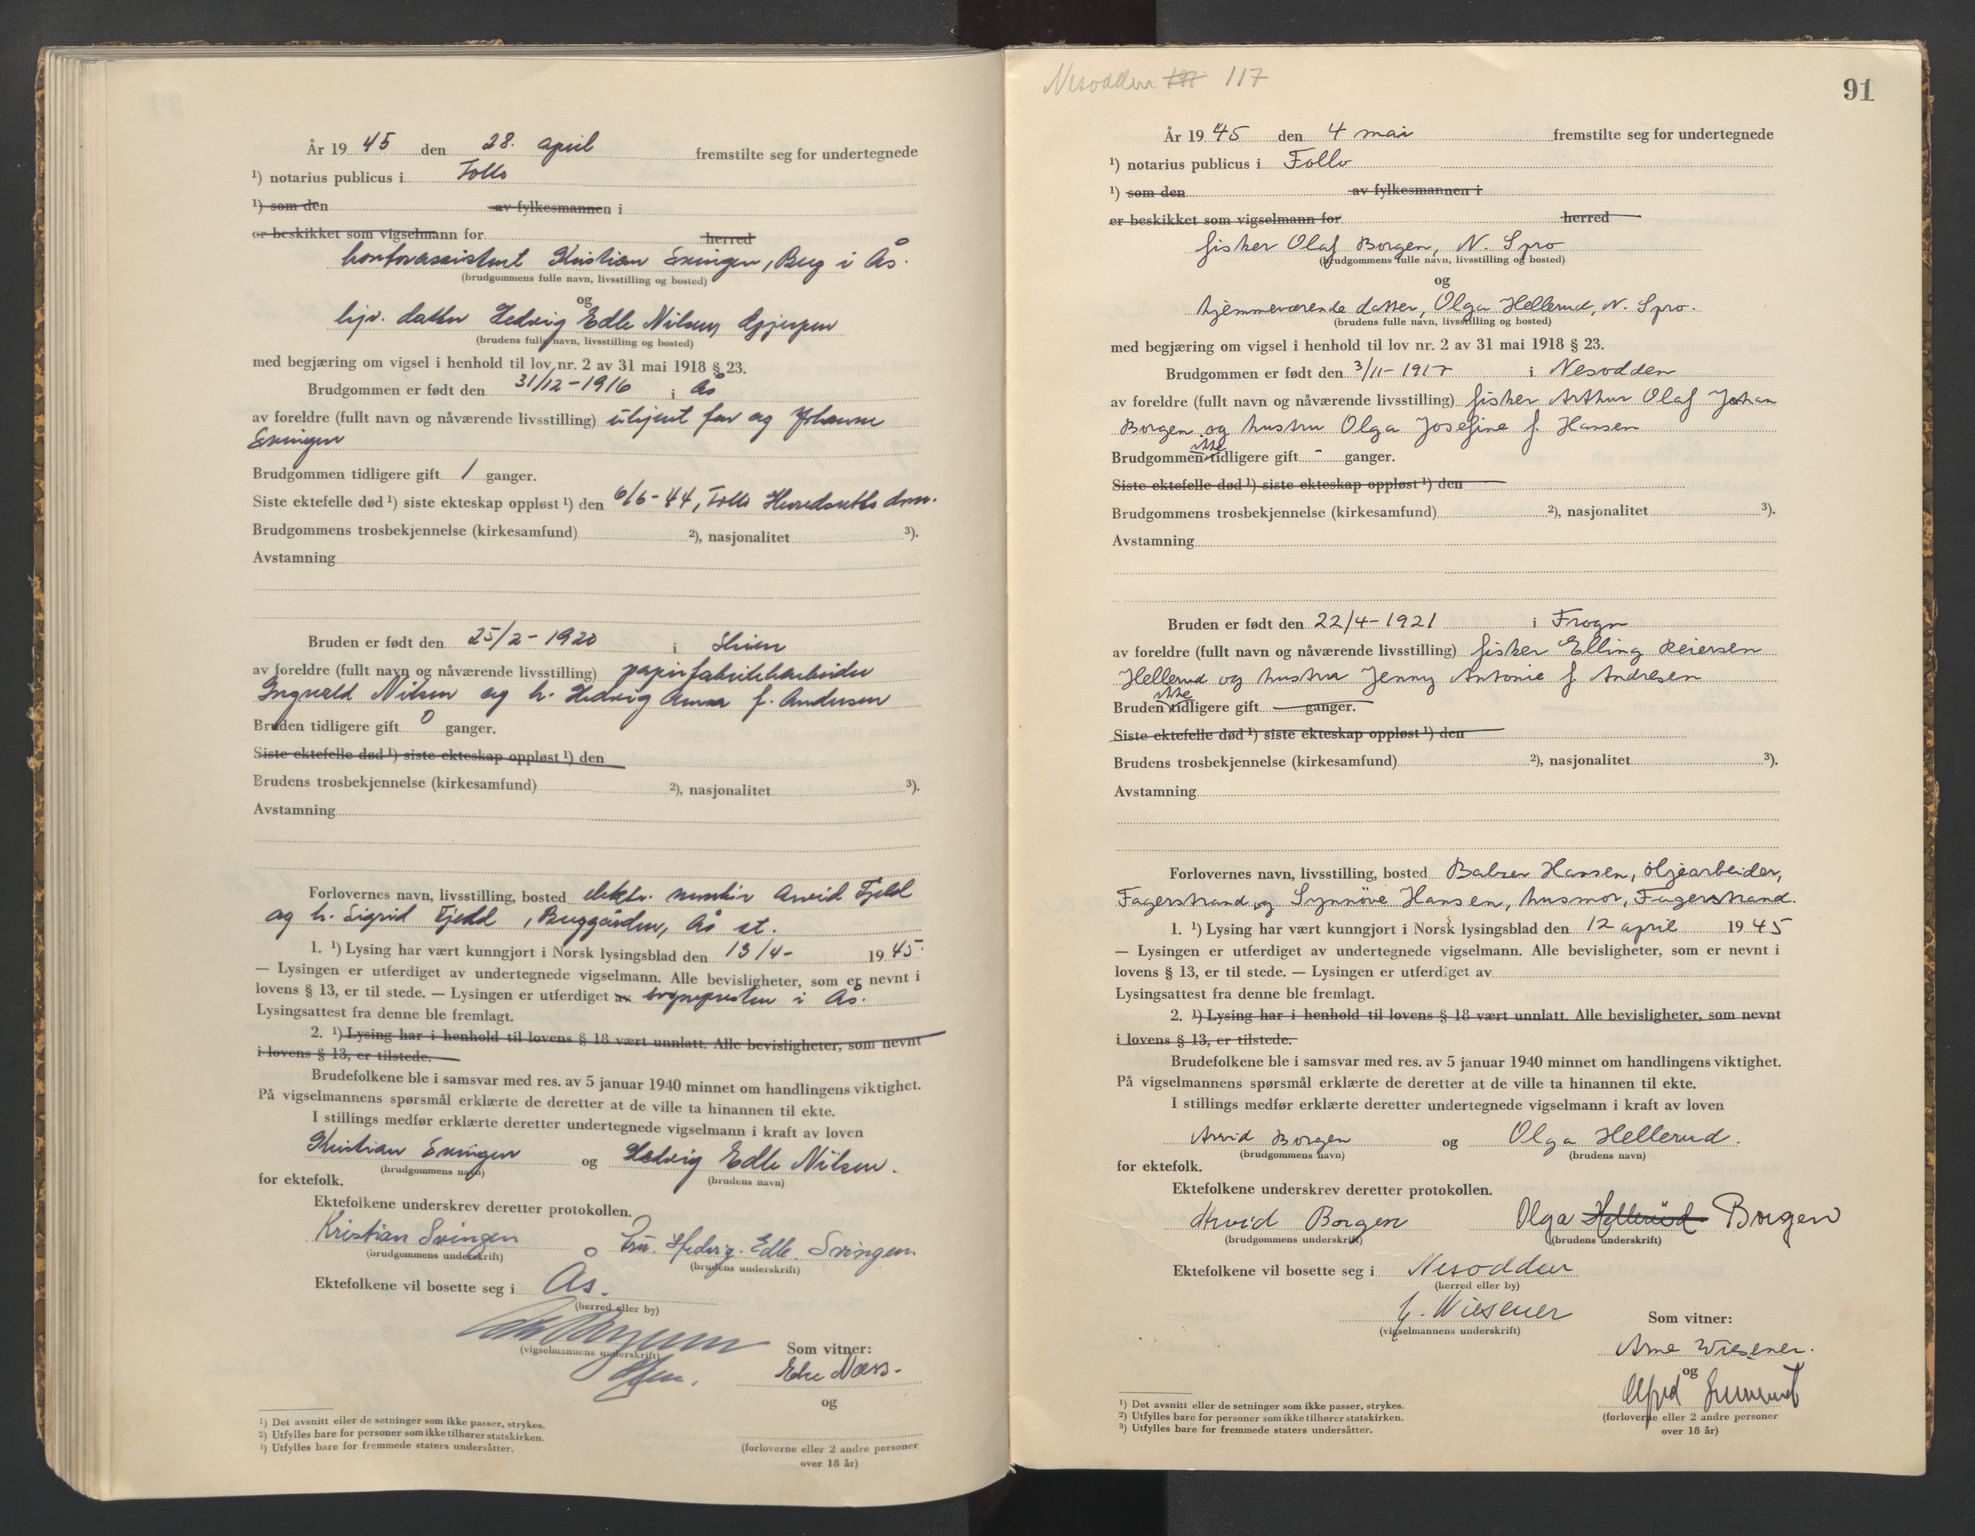 År 19 45 den 28. april fremstilte seg for undertegnede
¹) notarius publicus i Follo
¹) som den av fylkesmannen i
er beskikket som vigselmann for herred
kontorassistent Kristian Svingen, Bug i Ås.
(brudgommens fulle navn, livsstilling og bosted)
og
hjv. datter Hedvig Edle Nilsen, Gjerpen
(brudens fulle navn, livsstilling og bosted)
med begjæring om vigsel i henhold til lov nr. 2 av 31 mai 1918 § 23.
Brudgommen er født den 31/12-1916 i Ås
av foreldre (fullt navn og nåværende livsstilling) ukjent far og Johanne
Svingen
Brudgommen tidligere gift 1 ganger.
Siste ektefelle død ¹) siste ekteskap oppløst ¹) den 6/6-44, Follo Herredsretts dom.
Brudgommens trosbekjennelse (kirkesamfund) ²), nasjonalitet ³).
Avstamning
Bruden er født den 25/2-1920 i Skien
av foreldre (fullt navn og nåværende livsstilling) papirfabrikkarbeider
Ingvald Nilsen og h. Hedvig Anna f. Andersen
Bruden tidligere gift 0 ganger.
Siste ektefelle død ¹) siste ekteskap oppløst ¹) den
Brudens trosbekjennelse (kirkesamfund) ²), nasjonalitet ³).
Avstamning
Forlovernes navn, livsstilling, bosted elektr. montør Arvid Fjeld
og h. Sigrid Fjeld, Buggården, Ås st.
1. ¹) Lysing har vært kunngjort i Norsk lysingsblad den 13/4- 19 45.
— Lysingen er utferdiget av undertegnede vigselmann. Alle bevisligheter, som er nevnt i
lovens § 13, er til stede. — Lysingen er utferdiget av sognepresten i Ås.
Lysingsattest fra denne ble fremlagt.
2. ¹) Lysing har i henhold til lovens § 18 vært unnlatt. Alle bevisligheter, som nevnt
i lovens § 13, er tilstede.
Brudefolkene ble i samsvar med res. av 5 januar 1940 minnet om handlingens viktighet.
På vigselmannens spørsmål erklærte de deretter at de ville ta hinannen til ekte.
I stillings medfør erklærte deretter undertegnede vigselmann i kraft av loven
Kristian Svingen og Hedvig Edle Nilsen.
(brudgommens navn) (brudens navn)
for ektefolk.
Ektefolkene underskrev deretter protokollen.
Kristian Svingen Fru. Hedvig. Edle. Svingen.
(brudgommens underskrift) (brudens underskrift)
Ektefolkene vil bosette seg i Ås.
(herred eller by)
(vigselmannens underskrift)
Som vitner:
Næss.
og
(forloverne eller 2 andre personer
over 18 år)
¹) Det avsnitt eller de setninger som ikke passer, strykes.
²) Utfylles bare for personer som ikke tilhører statskirken.
³) Utfylles bare for fremmede staters undersåtter.
Nesodden 117
91
År 19 45 den 4 mai fremstilte seg for undertegnede
¹) notarius publicus i Follo
¹) som den av fylkesmannen i
er beskikket som vigselmann for herred
fisker Olaf Borgen, N. Spro
(brudgommens fulle navn, livsstilling og bosted)
og
hjemmeværende datter, Olga Hellerud, N. Spro.
(brudens fulle navn, livsstilling og bosted)
med begjæring om vigsel i henhold til lov nr. 2 av 31 mai 1918 § 23.
Brudgommen er født den 3/11-1917 i Nesodden
av foreldre (fullt navn og nåværende livsstilling) fisker Arthur Olaf Johan
Borgen og hustru Olga Josefine f. Hansen
Brudgommen ikke tidligere gift - ganger.
Siste ektefelle død ¹) siste ekteskap oppløst ¹) den
Brudgommens trosbekjennelse (kirkesamfund) ²), nasjonalitet ³).
Avstamning
Bruden er født den 22/4-1921 i Frogn
av foreldre (fullt navn og nåværende livsstilling) fisker Elling Reiersen
Hellerud og hustru Jenny Antonie f. Andresen
Bruden ikke tidligere gift ganger.
Siste ektefelle død ¹) siste ekteskap oppløst ¹) den
Brudens trosbekjennelse (kirkesamfund) ²), nasjonalitet ³).
Avstamning
Forlovernes navn, livsstilling, bosted Balser Hansen, oljearbeider,
Fagerstrand og Synnöve Hansen, husmor, Fagerstrand.
1. ¹) Lysing har vært kunngjort i Norsk lysingsblad den 12 april 19 45
— Lysingen er utferdiget av undertegnede vigselmann. Alle bevisligheter, som er nevnt i
lovens § 13, er til stede. — Lysingen er utferdiget av
Lysingsattest fra denne ble fremlagt.
2. ¹) Lysing har i henhold til lovens § 18 vært unnlatt. Alle bevisligheter, som nevnt
i lovens § 13, er tilstede.
Brudefolkene ble i samsvar med res. av 5 januar 1940 minnet om handlingens viktighet.
På vigselmannens spørsmål erklærte de deretter at de ville ta hinannen til ekte.
I stillings medfør erklærte deretter undertegnede vigselmann i kraft av loven
Arvid Borgen og Olga Hellerud.
(brudgommens navn) (brudens navn)
for ektefolk.
Ektefolkene underskrev deretter protokollen.
Arvid Borgen Olga Hellerud Borgen
(brudgommens underskrift) (brudens underskrift)
Ektefolkene vil bosette seg i Nesodden
(herred eller by)
Wiesener
(vigselmannens underskrift)
Som vitner:
Arne Wiesener.
og
Alfred
(forloverne eller 2 andre personer
over 18 år)
¹) Det avsnitt eller de setninger som ikke passer, strykes.
²) Utfylles bare for personer som ikke tilhører statskirken.
³) Utfylles bare for fremmede staters undersåtter.